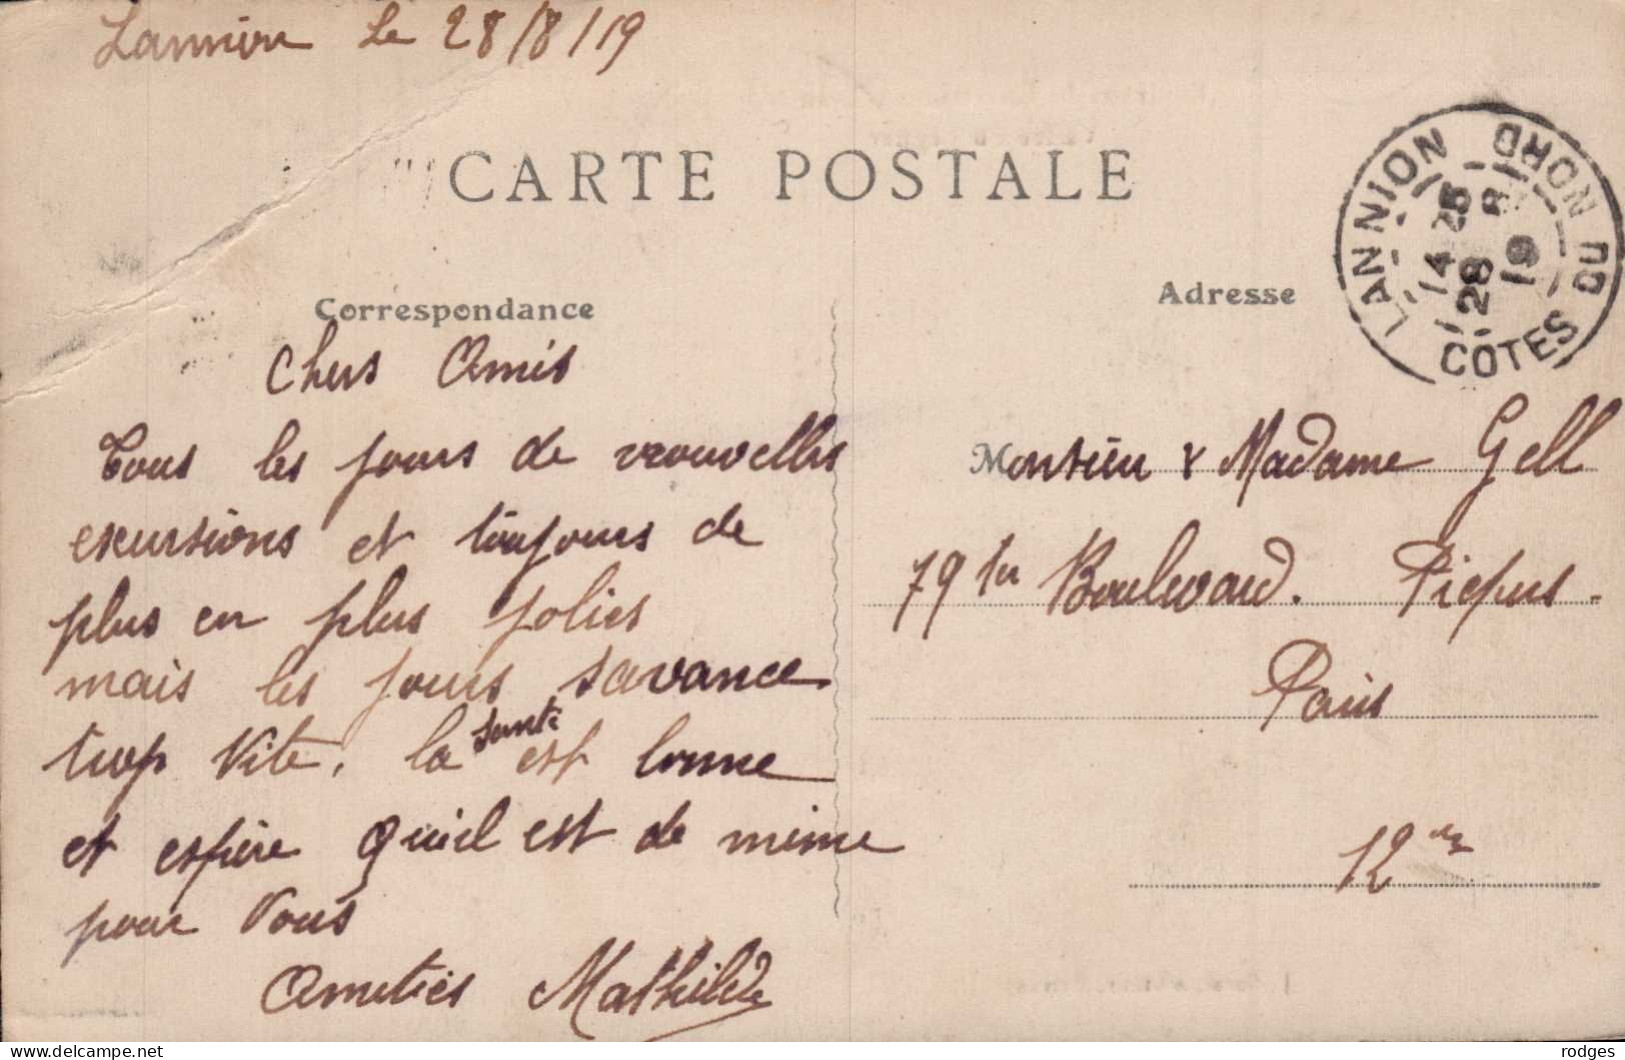 Lannion Le 28/8/19
CARTE POSTALE
Correspondance
Adresse
LANNION
COTES DU NORD
14 25
28 8
19
Chers Amis
Tous les jours de nouvelles
excursions et toujours de
plus en plus jolies
mais les jours savance
trop vite, la santé est bonne
et espère quil est de même
pour Vous
Amitiés Mathilde
Monsieur & Madame Gell
79 Boulevard. Picpus.
Paris
12
delcampe.net
rodges